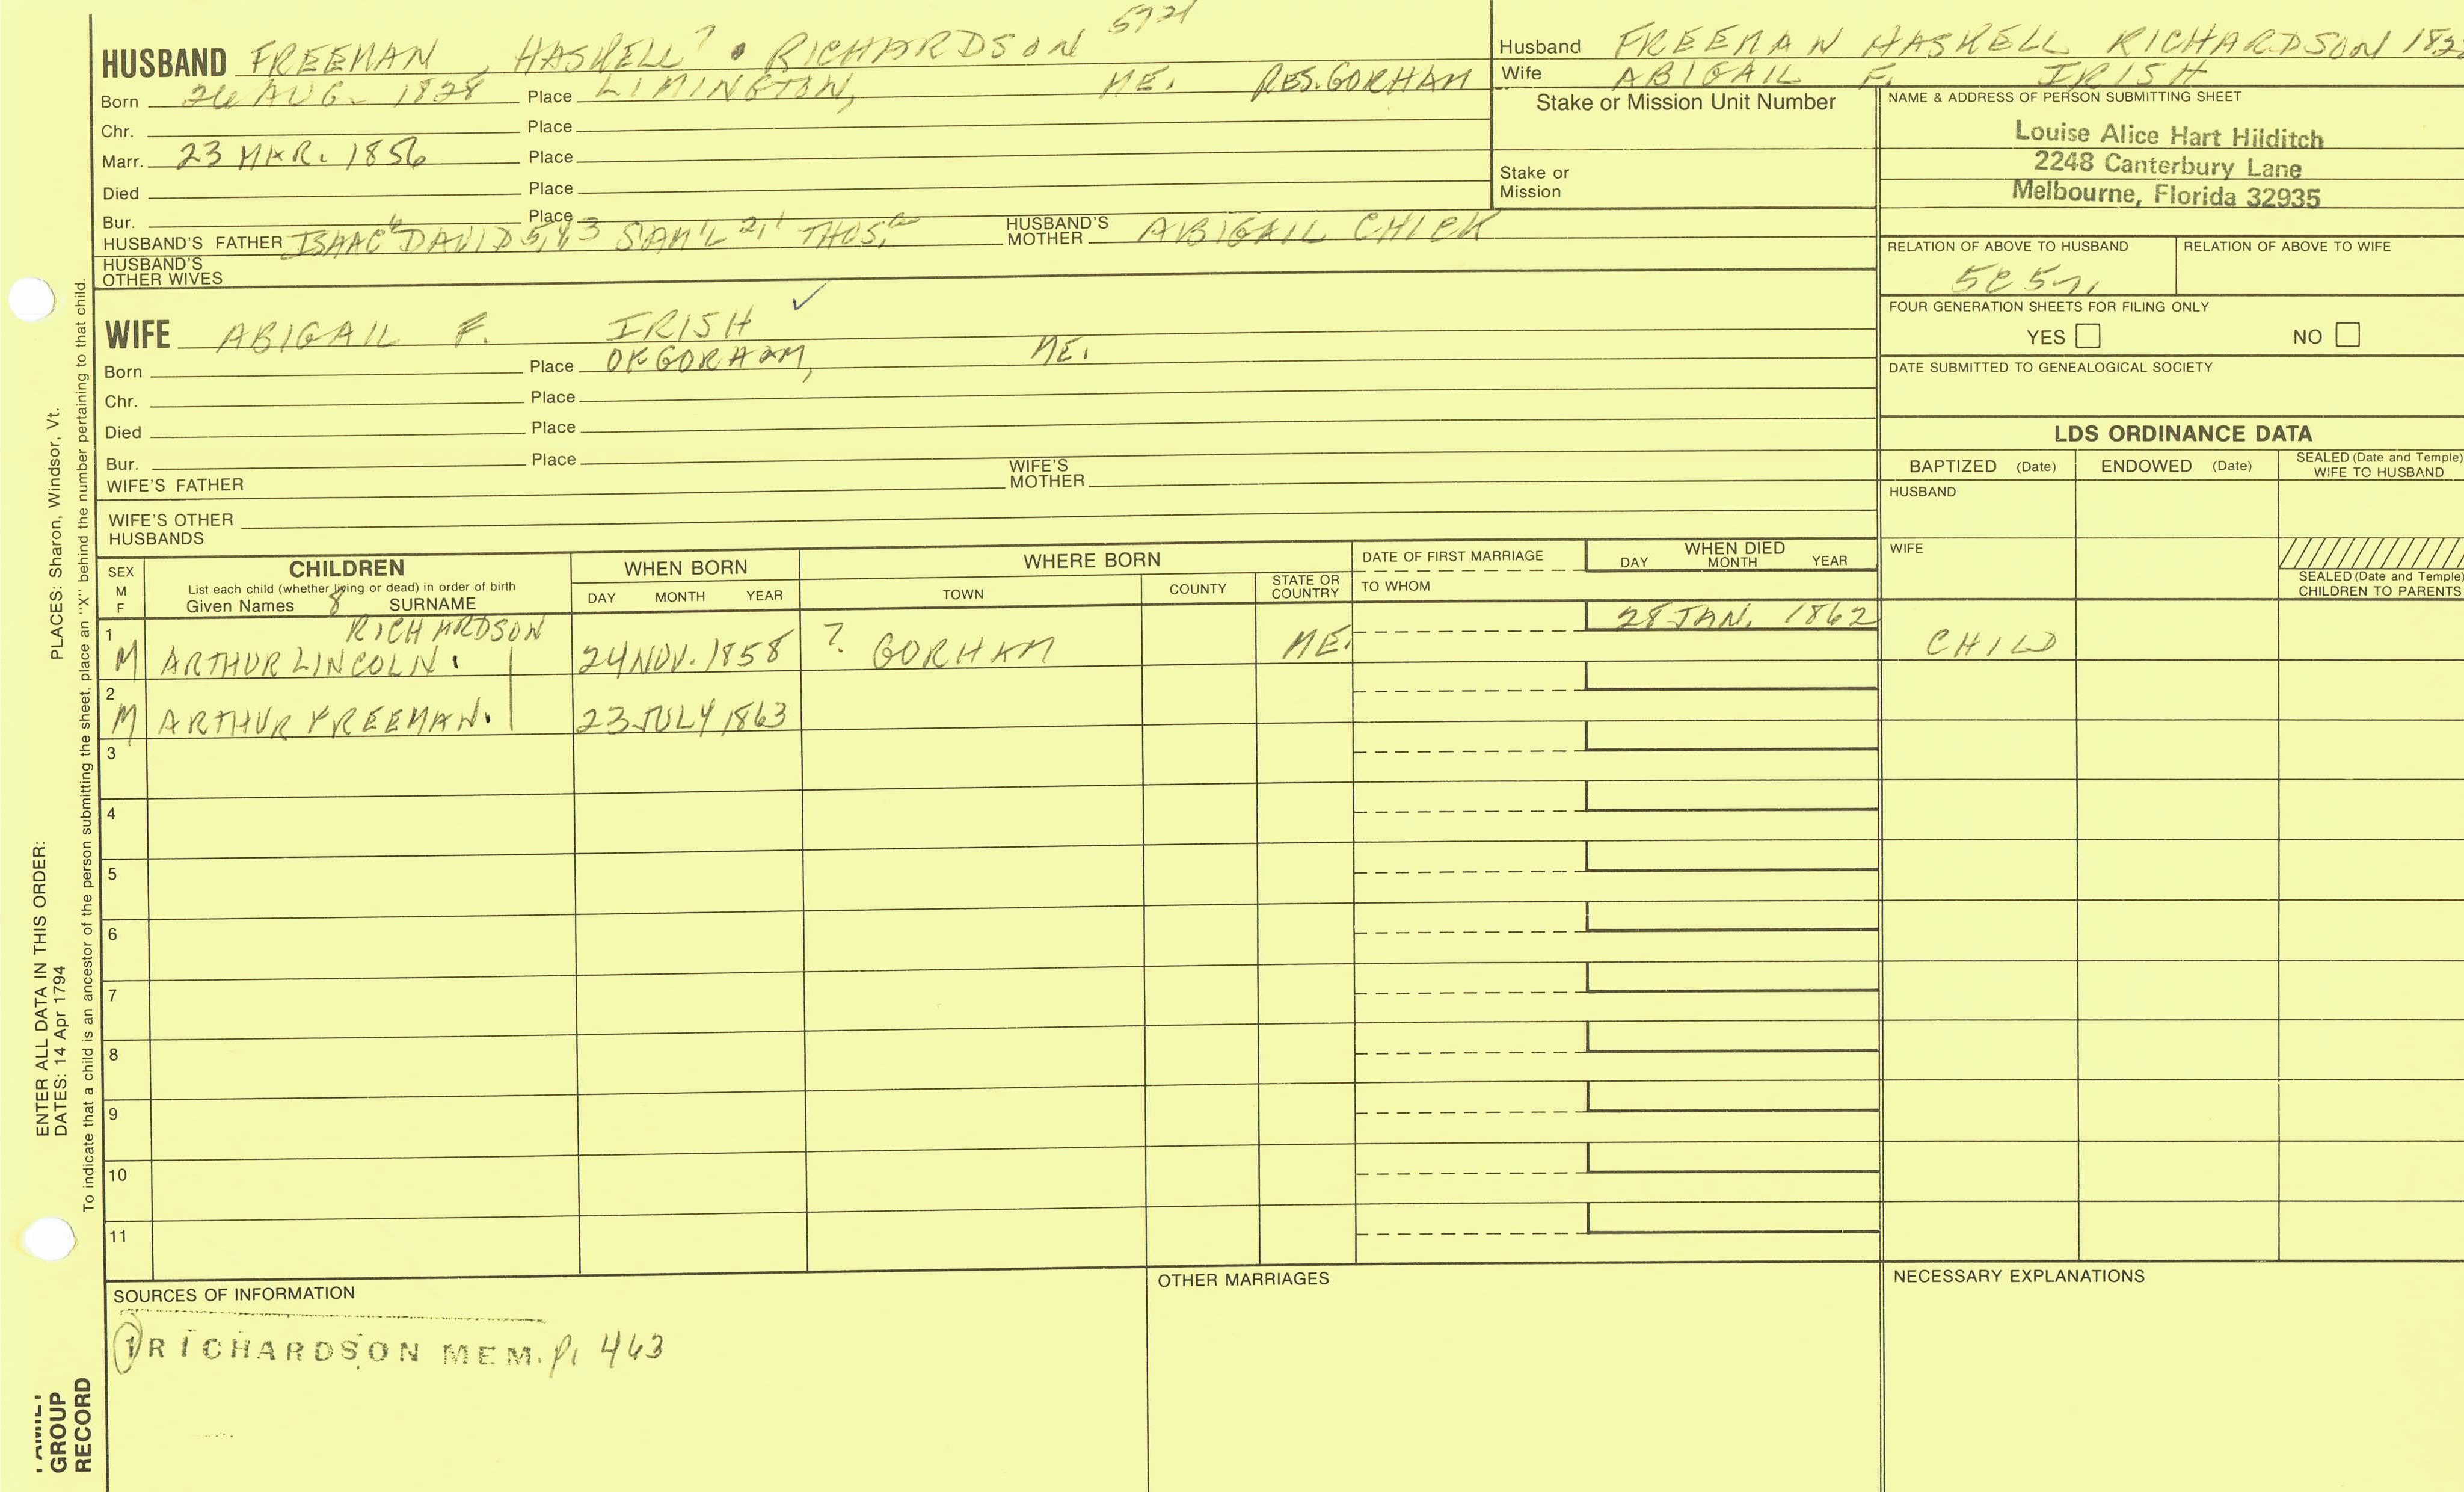 5721
HUSBAND FREEMAN, HASKELL 7 . RICHARDSON
Born 26 AUG. 1828 Place LIMINGTON, ME. RES. GORHAM
Chr. Place
Marr. 23 MAR. 1856 Place
Died Place
Bur. Place
HUSBAND'S FATHER ISAAC 6 DAVID 5,4,3 SAM'L 2,1 THOS. HUSBAND'S MOTHER ABIGAIL CHICK
HUSBAND'S
OTHER WIVES
WIFE ABIGAIL F. IRISH ✓
Born Place OF GORHAM, ME.
Chr. Place
Died Place
Bur. Place
WIFE'S FATHER WIFE'S MOTHER
WIFE'S OTHER
HUSBANDS
Husband FREEMAN HASKELL RICHARDSON 182
Wife ABIGAIL F. IRISH
Stake or Mission Unit Number
Stake or
Mission
NAME & ADDRESS OF PERSON SUBMITTING SHEET
Louise Alice Hart Hilditch
2248 Canterbury Lane
Melbourne, Florida 32935
RELATION OF ABOVE TO HUSBAND RELATION OF ABOVE TO WIFE
FOUR GENERATION SHEETS FOR FILING ONLY
YES NO
DATE SUBMITTED TO GENEALOGICAL SOCIETY
LDS ORDINANCE DATA
BAPTIZED (Date) ENDOWED (Date) SEALED (Date and Temple)
WIFE TO HUSBAND
HUSBAND
WIFE
SEALED (Date and Temple)
CHILDREN TO PARENTS
SEX
M
F
CHILDREN
List each child (whether living or dead) in order of birth
Given Names 8 SURNAME
WHEN BORN
DAY MONTH YEAR
WHERE BORN
TOWN COUNTY STATE OR COUNTRY
DATE OF FIRST MARRIAGE
TO WHOM
WHEN DIED
DAY MONTH YEAR
1 RICHARDSON 28 JAN. 1862
M ARTHUR LINCOLN. 24 NOV. 1858 ? GORHAM ME. CHILD
2
M ARTHUR FREEMAN. 23 JULY 1863
3
4
5
6
7
8
9
10
11
SOURCES OF INFORMATION
1 RICHARDSON MEM. P. 463
OTHER MARRIAGES
NECESSARY EXPLANATIONS
ENTER ALL DATA IN THIS ORDER:
DATES: 14 Apr 1794
PLACES: Sharon, Windsor, Vt.
To indicate that a child is an ancestor of the person submitting the sheet, place an "X" behind the number pertaining to that child.
FAMILY
GROUP
RECORD